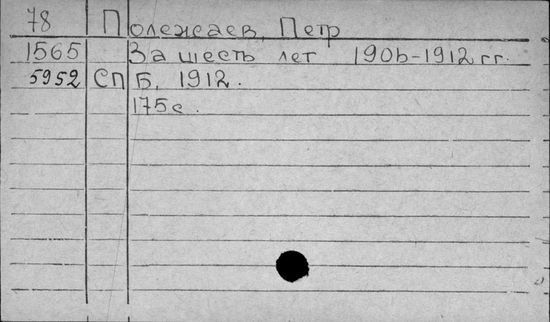 78 Полежаев, Петр
1565 За шесть лет 1906-1912 гг.
5952 СПБ, 1912.
175с.